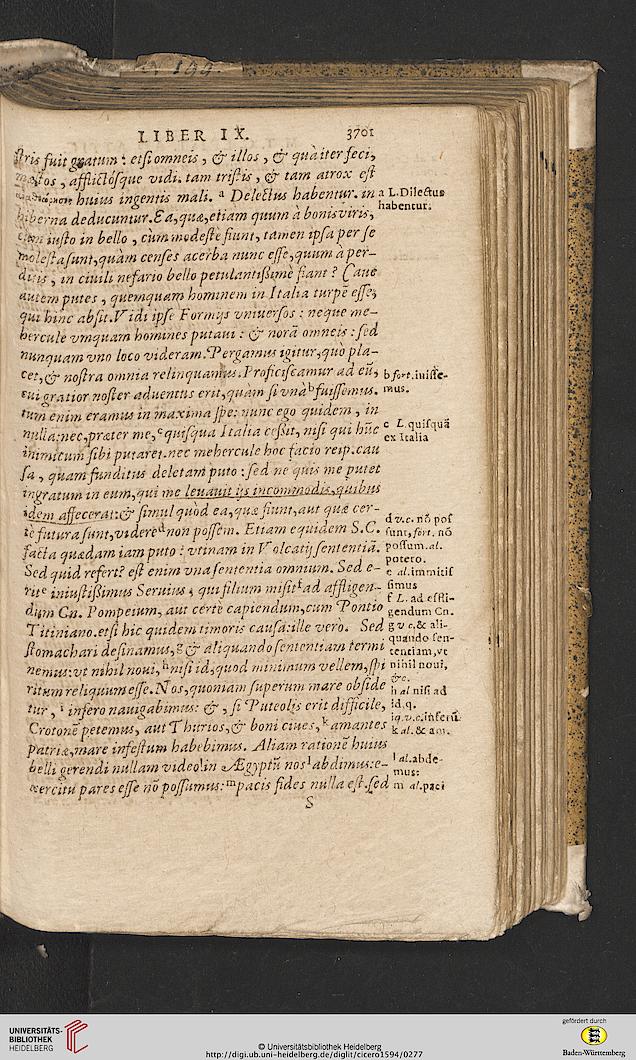 LIBER IX. 3701
stris fuit gratum: etsi omneis, & illos, & quà iter feci,
mœstos, afflictósque vidi. tam tristis, & tam atrox est
huius ingentis mali. ᵃ Delectus habentur. in
hiberna deducuntur. Ea, quæ, etiam quum à bonis viris,
cum iusto in bello, cùm modestè fiunt, tamen ipsa per se
molesta sunt, quàm censes acerba nunc esse, quum à per-
ditis, in ciuili nefario bello petulantißimè fiant? Caue
autem putes, quemquam hominem in Italia turpē esse,
qui hinc absit. Vidi ipse Formijs vniuersos: neque me-
hercule vmquam homines putaui: & norā omneis: sed
nunquam vno loco videram. Pergamus igitur, quò pla-
cet, & nostra omnia relinquamus. Proficiscamur ad eū,
cui gratior noster aduentus erit, quàm si vnà ᵇ fuissemus.
tum enim eramus in maxima spe: nunc ego quidem, in
nulla: nec, præter me, ᶜ quisqua Italia ceßit, nisi qui hūc
inimicum sibi putaret. nec mehercule hoc facio reip. cau
sa, quam funditus deletam puto: sed ne quis me putet
ingratum in eum, qui me leuauit ijs incommodis, quibus
idem affecerat: & simul quòd ea, quæ fiunt, aut quæ cer-
tè futura sunt, videre ᵈ non possem. Etiam equidem S.C.
facta quædam iam puto: vtinam in Volcatij sententiā.
Sed quid refert? est enim vna sententia omnium. Sed e-
rit ᵉ iniustißimus Seruius, qui filium misit ᶠ ad affligen-
dum Cn. Pompeium, aut certè capiendum, cum Pontio
Titiniano. etsi hic quidem timoris causa: ille verò. Sed
stomachari desinamus, ᵍ & aliquando sententiam termi
nemus: vt nihil noui, ʰ nisi id, quod minimum vellem, spi
ritum reliquum esse. Nos, quoniam superum mare obside
tur, ⁱ infero nauigabimus: &, si Puteolis erit difficile,
Crotonē petemus, aut Thurios, & boni ciues, ᵏ amantes
patriæ, mare infestum habebimus. Aliam rationē huius
belli gerendi nullam video: in Ægyptū nos ˡ abdimus: e-
xercitu pares esse nō possumus: ᵐ pacis fides nulla est. sed
S
a L. Dilectus
habentur.
b fort. iuisse-
mus.
c L. quisquā
ex Italia
d v.c. nō pos
sunt, fort. nō
possum. al.
potero.
e al. immitis
simus
f L. ad effli-
gendum Cn.
g v c. & ali-
quando sen-
tentiam, vt
nihil noui,
&c.
h al nisi ad
id, q.
i q. v.c. inferū.
k al. & am.
l al. abde-
mus:
m al. paci
UNIVERSITÄTS-
BIBLIOTHEK
HEIDELBERG
© Universitätsbibliothek Heidelberg
http://digi.ub.uni-heidelberg.de/diglit/cicero1594/0277
gefördert durch
Baden-Württemberg